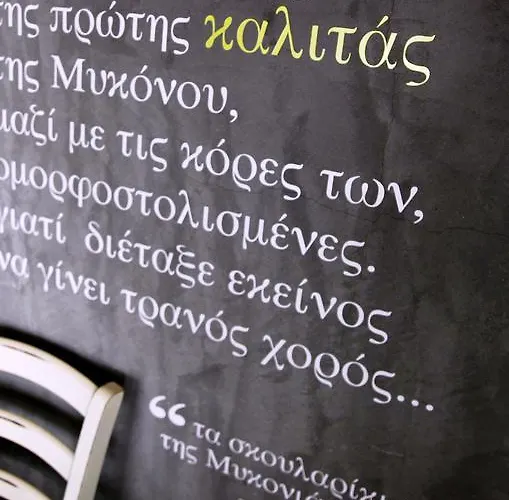 της πρώτης καλιτάς
της Μυκόνου,
μαζί με τις κόρες των,
ομορφοστολισμένες.
γιατί διέταξε εκείνος
να γίνει τρανός χορός...
“ τα σκουλαρίκι
της Μυκονιά